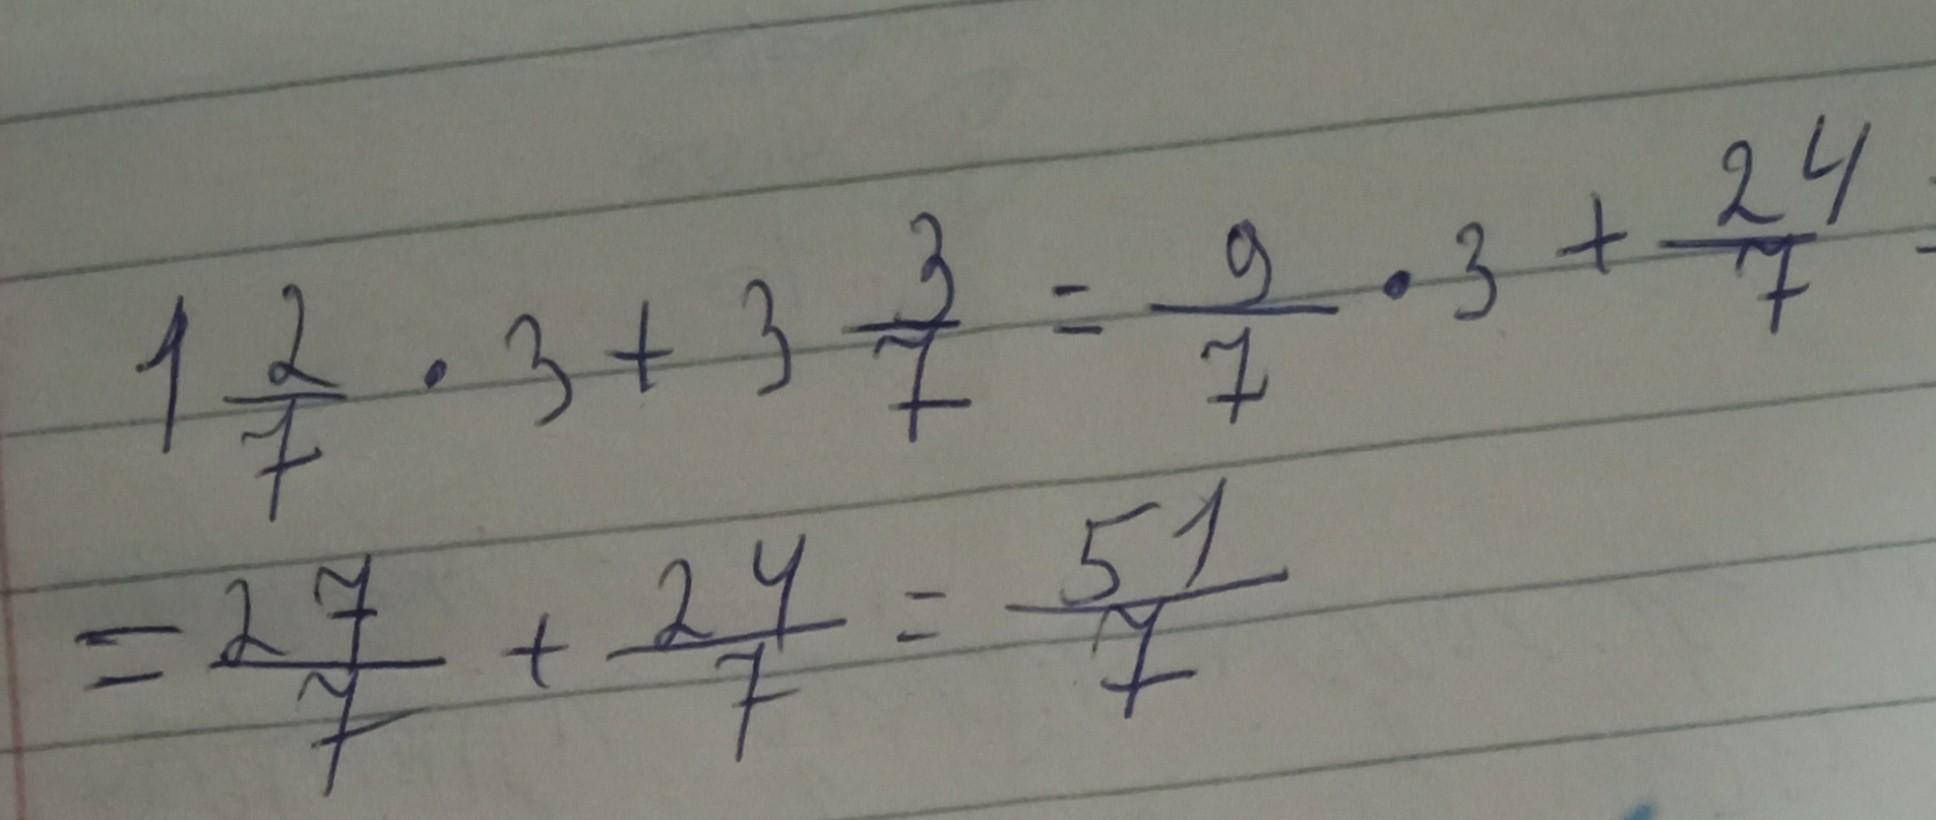 1 2/7 · 3 + 3 3/7 = 9/7 · 3 + 24/7 =
= 27/7 + 24/7 = 51/7